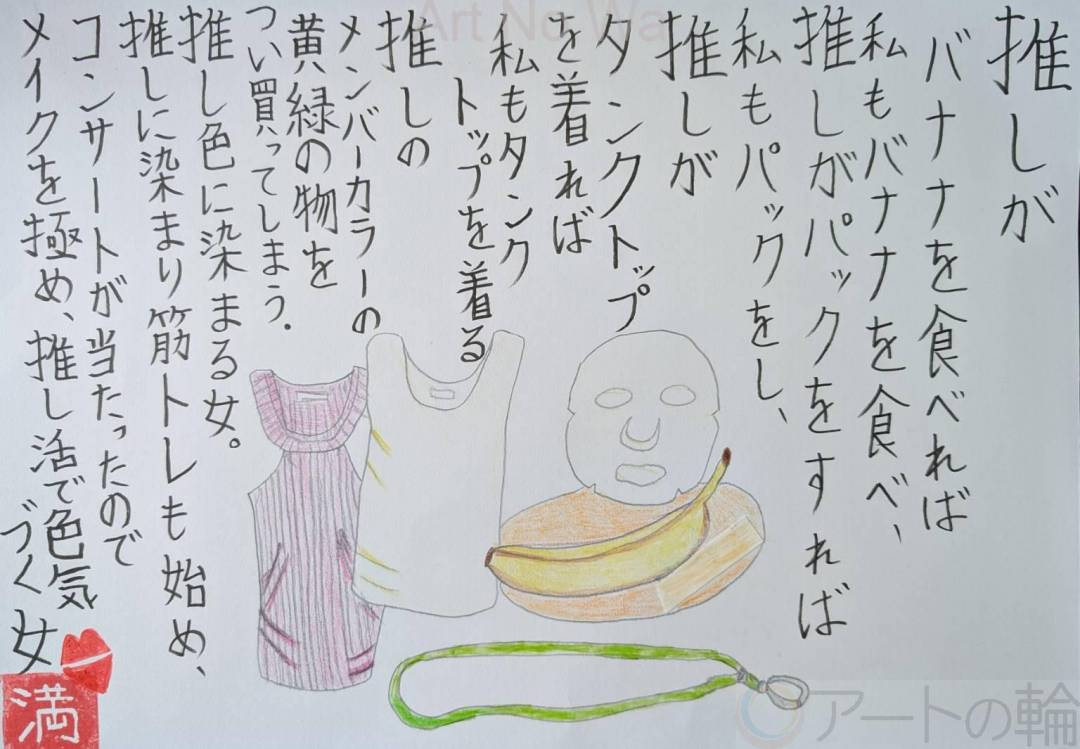 推しが
バナナを食べれば
私もバナナを食べ、
推しがパックをすれば
私もパックをし、
推しが
タンクトップ
を着れば
私もタンク
トップを着る
推しの
メンバーカラーの
黄緑の物を
つい買ってしまう。
推し色に染まる女。
推しに染まり筋トレも始め、
コンサートが当たったので
メイクを極め、推し活で色気
づく女
満
Art No Wa
アートの輪